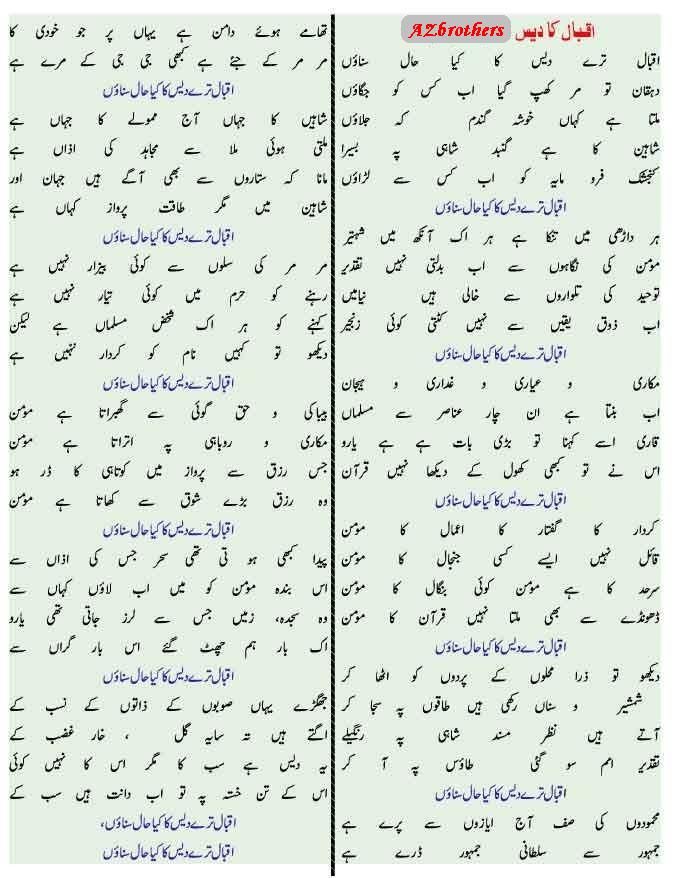 اقبال کا دیس AZbrothers
اقبال ترے دیس کا کیا حال سناؤں
دہقان تو مر کھپ گیا اب کس کو جگاؤں
ملتا ہے کہاں خوشہ گندم کہ جلاؤں
شاہین کا ہے گنبد شاہی پہ بسیرا
کنجشک فرو مایہ کو اب کس سے لڑاؤں
اقبال ترے دیس کا کیا حال سناؤں
ہر داڑھی میں تنکا ہے ہر اک آنکھ میں شہتیر
مؤمن کی نگاہوں سے اب بدلتی نہیں تقدیر
توحید کی تلواروں سے خالی ہیں نیامیں
اب ذوق یقیں سے نہیں کٹتی کوئی زنجیر
اقبال ترے دیس کا کیا حال سناؤں
مکاری و عیاری و غداری و ہیجان
اب بنتا ہے ان چار عناصر سے مسلماں
قاری اسے کہنا تو بڑی بات ہے یارو
اس نے تو کبھی کھول کے دیکھا نہیں قرآن
اقبال ترے دیس کا کیا حال سناؤں
کردار کا گفتار کا اعمال کا مؤمن
قائل نہیں ایسے کسی جنجال کا مؤمن
سرحد کا ہے مؤمن کوئی بنگال کا مؤمن
ڈھونڈے سے بھی ملتا نہیں قرآن کا مؤمن
اقبال ترے دیس کا کیا حال سناؤں
دیکھو تو ذرا محلوں کے پردوں کو اٹھا کر
شمشیر و سناں رکھی ہیں طاقوں پہ سجا کر
آتے ہیں نظر مند شاہی پہ رنگیلے
تقدیر امم سو گئی طاؤس پہ آ کر
اقبال ترے دیس کا کیا حال سناؤں
محمودوں کی صف آج ایازوں سے پرے ہے
جمہور سے سلطانی جمہور ڈرے ہے
تھامے ہوئے دامن ہے یہاں پر جو خودی کا
مر مر کے جئے ہے کبھی جی جی کے مرے ہے
اقبال ترے دیس کا کیا حال سناؤں
شاہیں کا جہاں آج ممولے کا جہاں ہے
ملتی ہوئی ملا سے مجاہد کی اذاں ہے
مانا کہ ستاروں سے بھی آگے ہیں جہان اور
شاہین میں مگر طاقت پرواز کہاں ہے
اقبال ترے دیس کا کیا حال سناؤں
مر مر کی سلوں سے کوئی بیزار نہیں ہے
رہنے کو حرم میں کوئی تیار نہیں ہے
کہنے کو ہر اک شخص مسلماں ہے لیکن
دیکھو تو کہیں نام کو کردار نہیں ہے
اقبال ترے دیس کا کیا حال سناؤں
بیباکی و حق گوئی سے گھبراتا ہے مؤمن
مکاری و روباہی پہ اتراتا ہے مؤمن
جس رزق سے پرواز میں کوتاہی کا ڈر ہو
وہ رزق بڑے شوق سے کھاتا ہے مؤمن
اقبال ترے دیس کا کیا حال سناؤں
پیدا کبھی ہو تی تھی سحر جس کی اذاں سے
اس بندہ مؤمن کو میں اب لاؤں کہاں سے
وہ سجدہ، زمیں جس سے لرز جاتی تھی یارو
اک بار ہم چھٹ گئے اس بار گراں سے
اقبال ترے دیس کا کیا حال سناؤں
جھگڑے یہاں صوبوں کے ذاتوں کے نسب کے
اگتے ہیں تہ سایہ گل ، خار غضب کے
یہ دیس ہے سب کا مگر اس کا نہیں کوئی
اس کے تن خستہ پہ تو اب دانت ہیں سب کے
اقبال ترے دیس کا کیا حال سناؤں،
اقبال ترے دیس کا کیا حال سناؤں